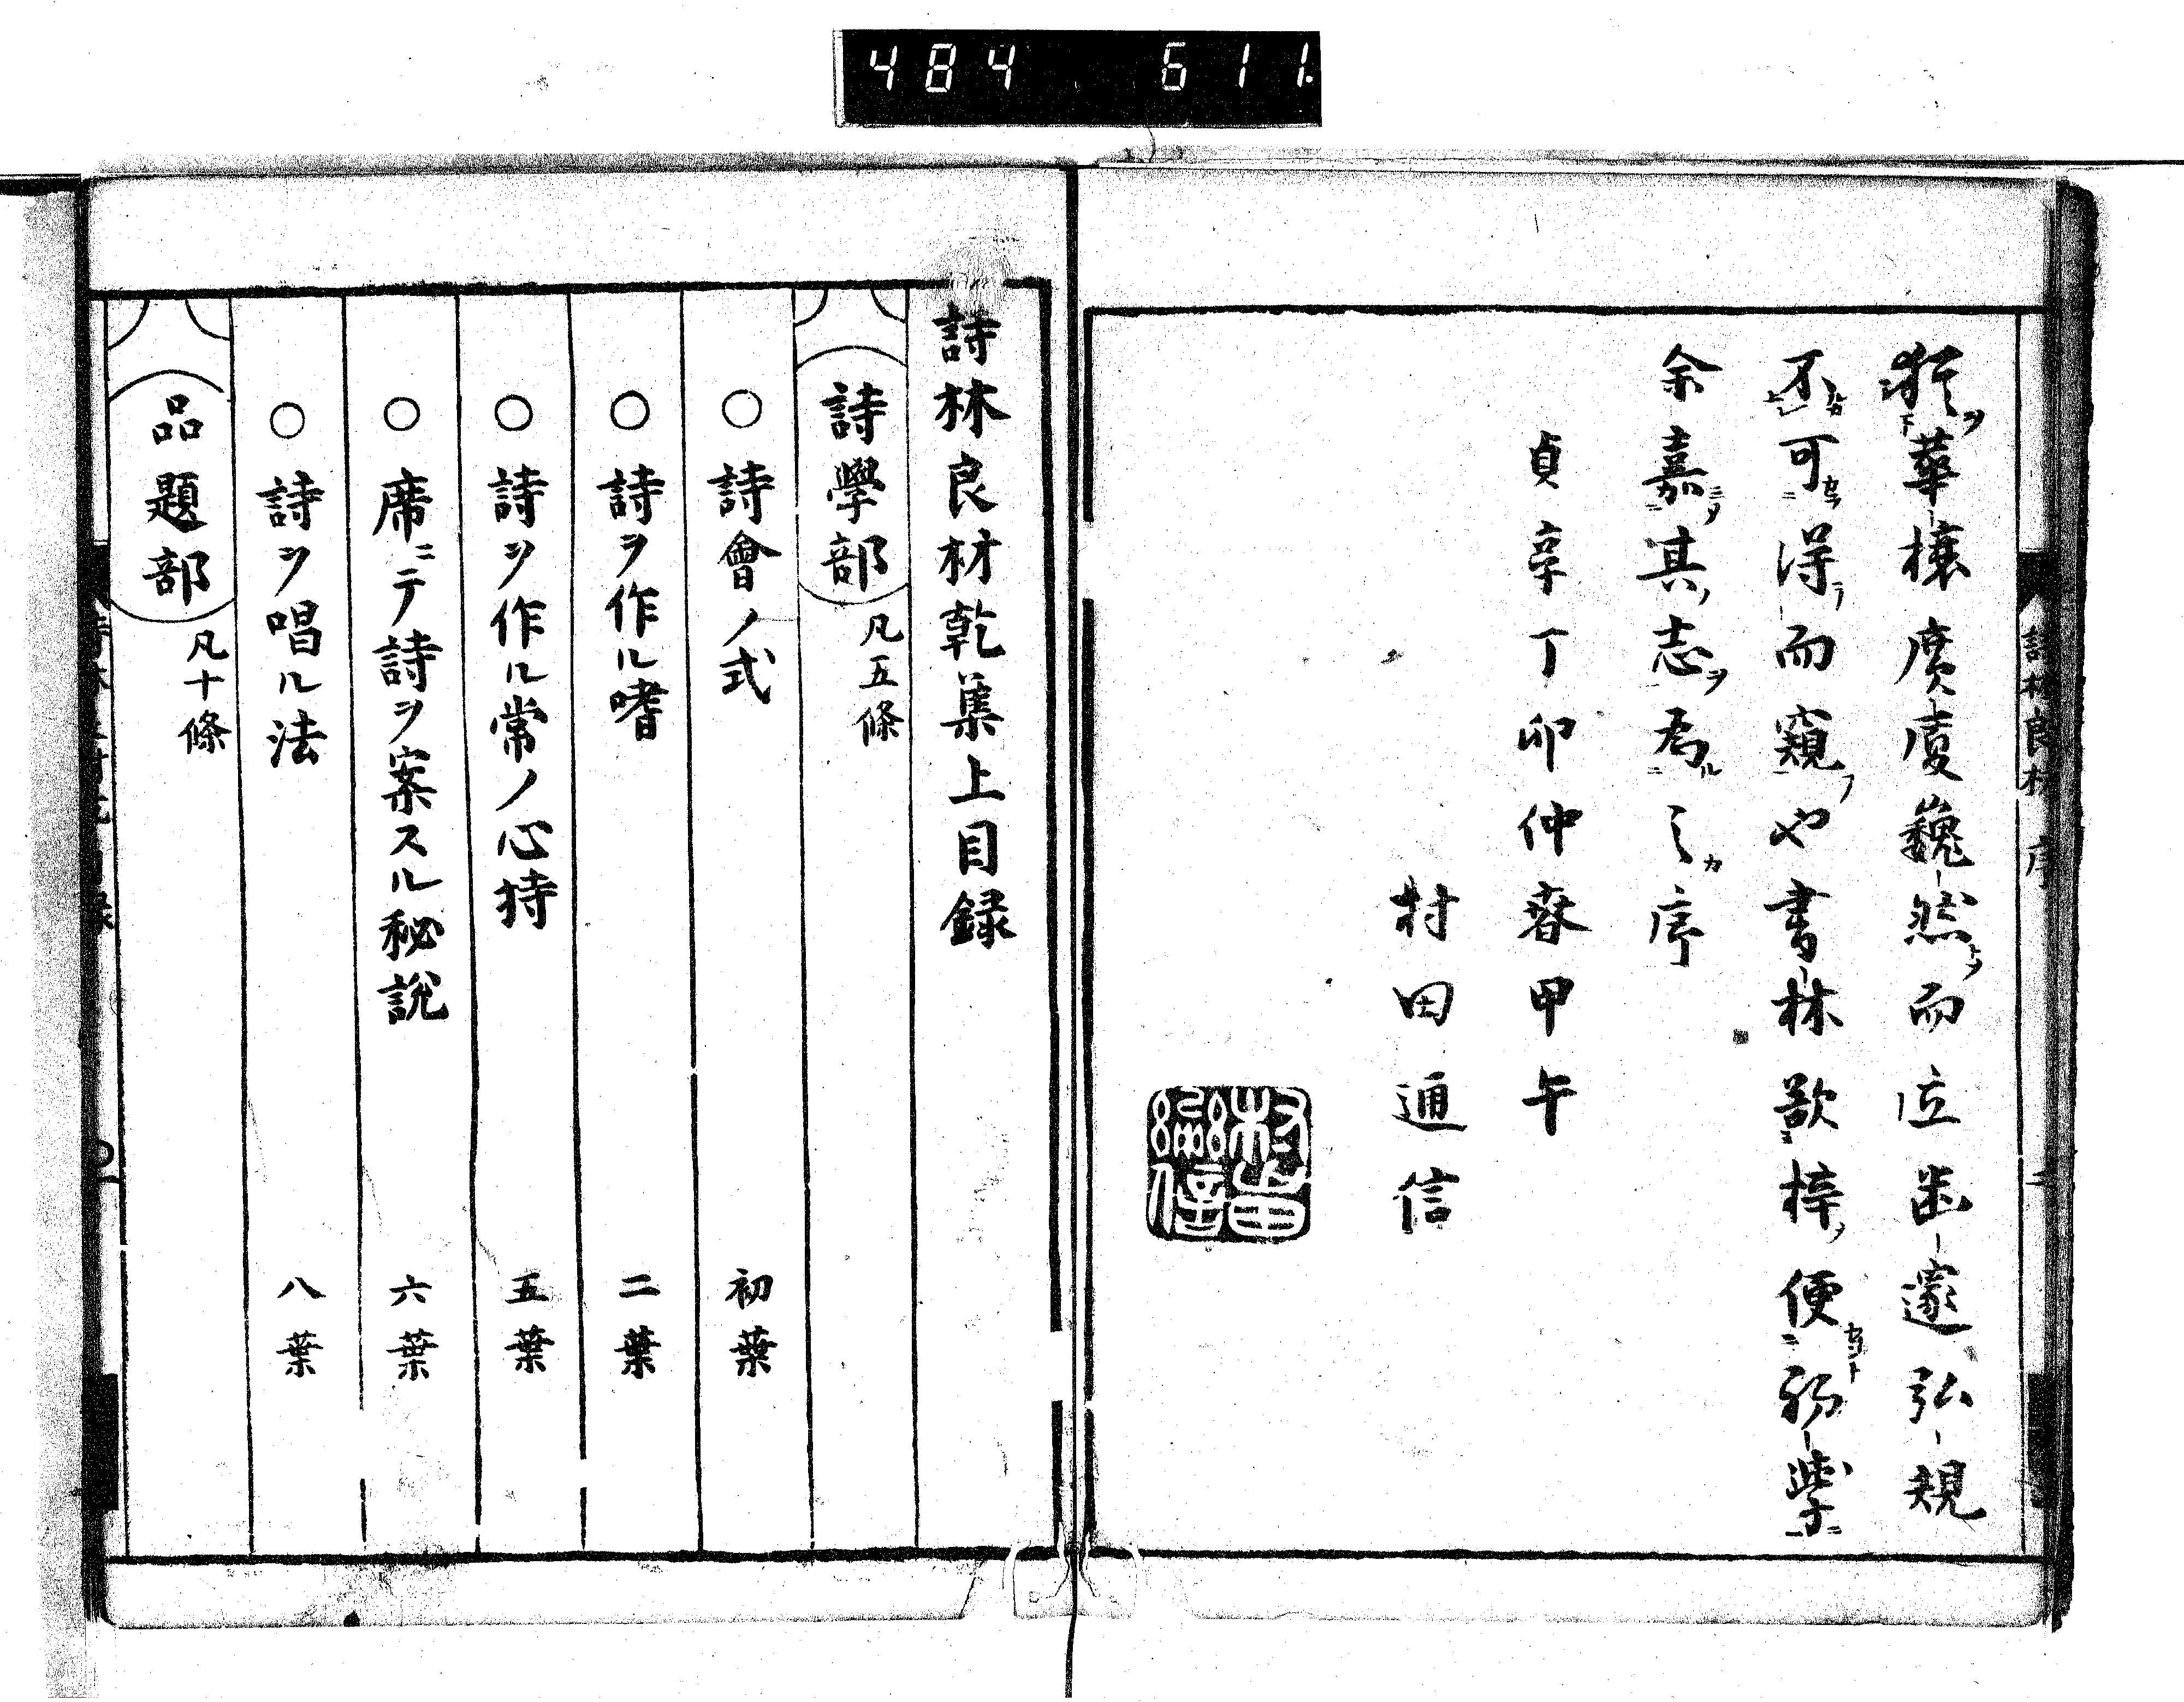 484 611.
華榱廣廈巍然而位幽邃弘規
不可得而窺也書林欲梓便
余嘉其志爲之序
貞享丁卯仲春甲午
村田通信
詩林良材 序
詩林良材乾集上目録
詩學部 凡五條
○詩會ノ式 初葉
○詩ヲ作ル嗜 二葉
○詩ヲ作ル常ノ心持 五葉
○席ニテ詩ヲ案スル秘説 六葉
○詩ヲ唱ル法 八葉
品題部 凡十條